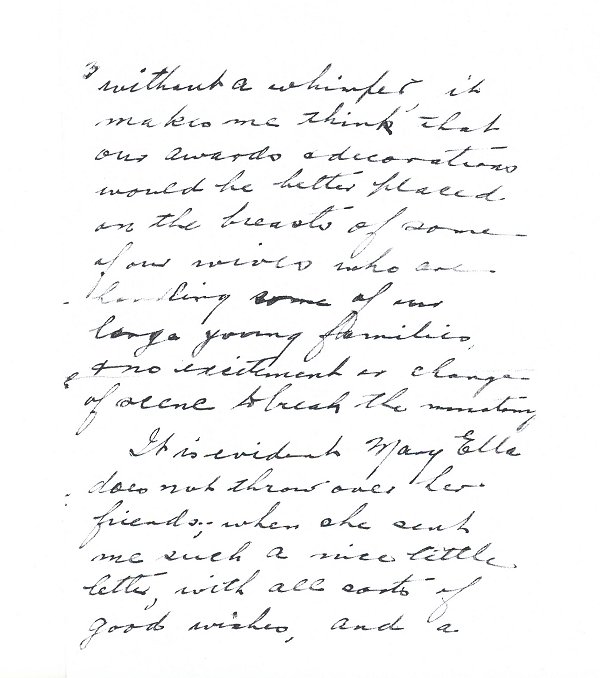 without a whimper it
makes me think that
our awards & decorations
would be better placed
on the breasts of some
of our wives who are
handling some of our
large young families,
& no excitement or change
of scene to break the monotony
It is evident Mary Ella
does not throw over her
friends; when she sent
me such a nice little
letter, with all sorts of
good wishes, and a